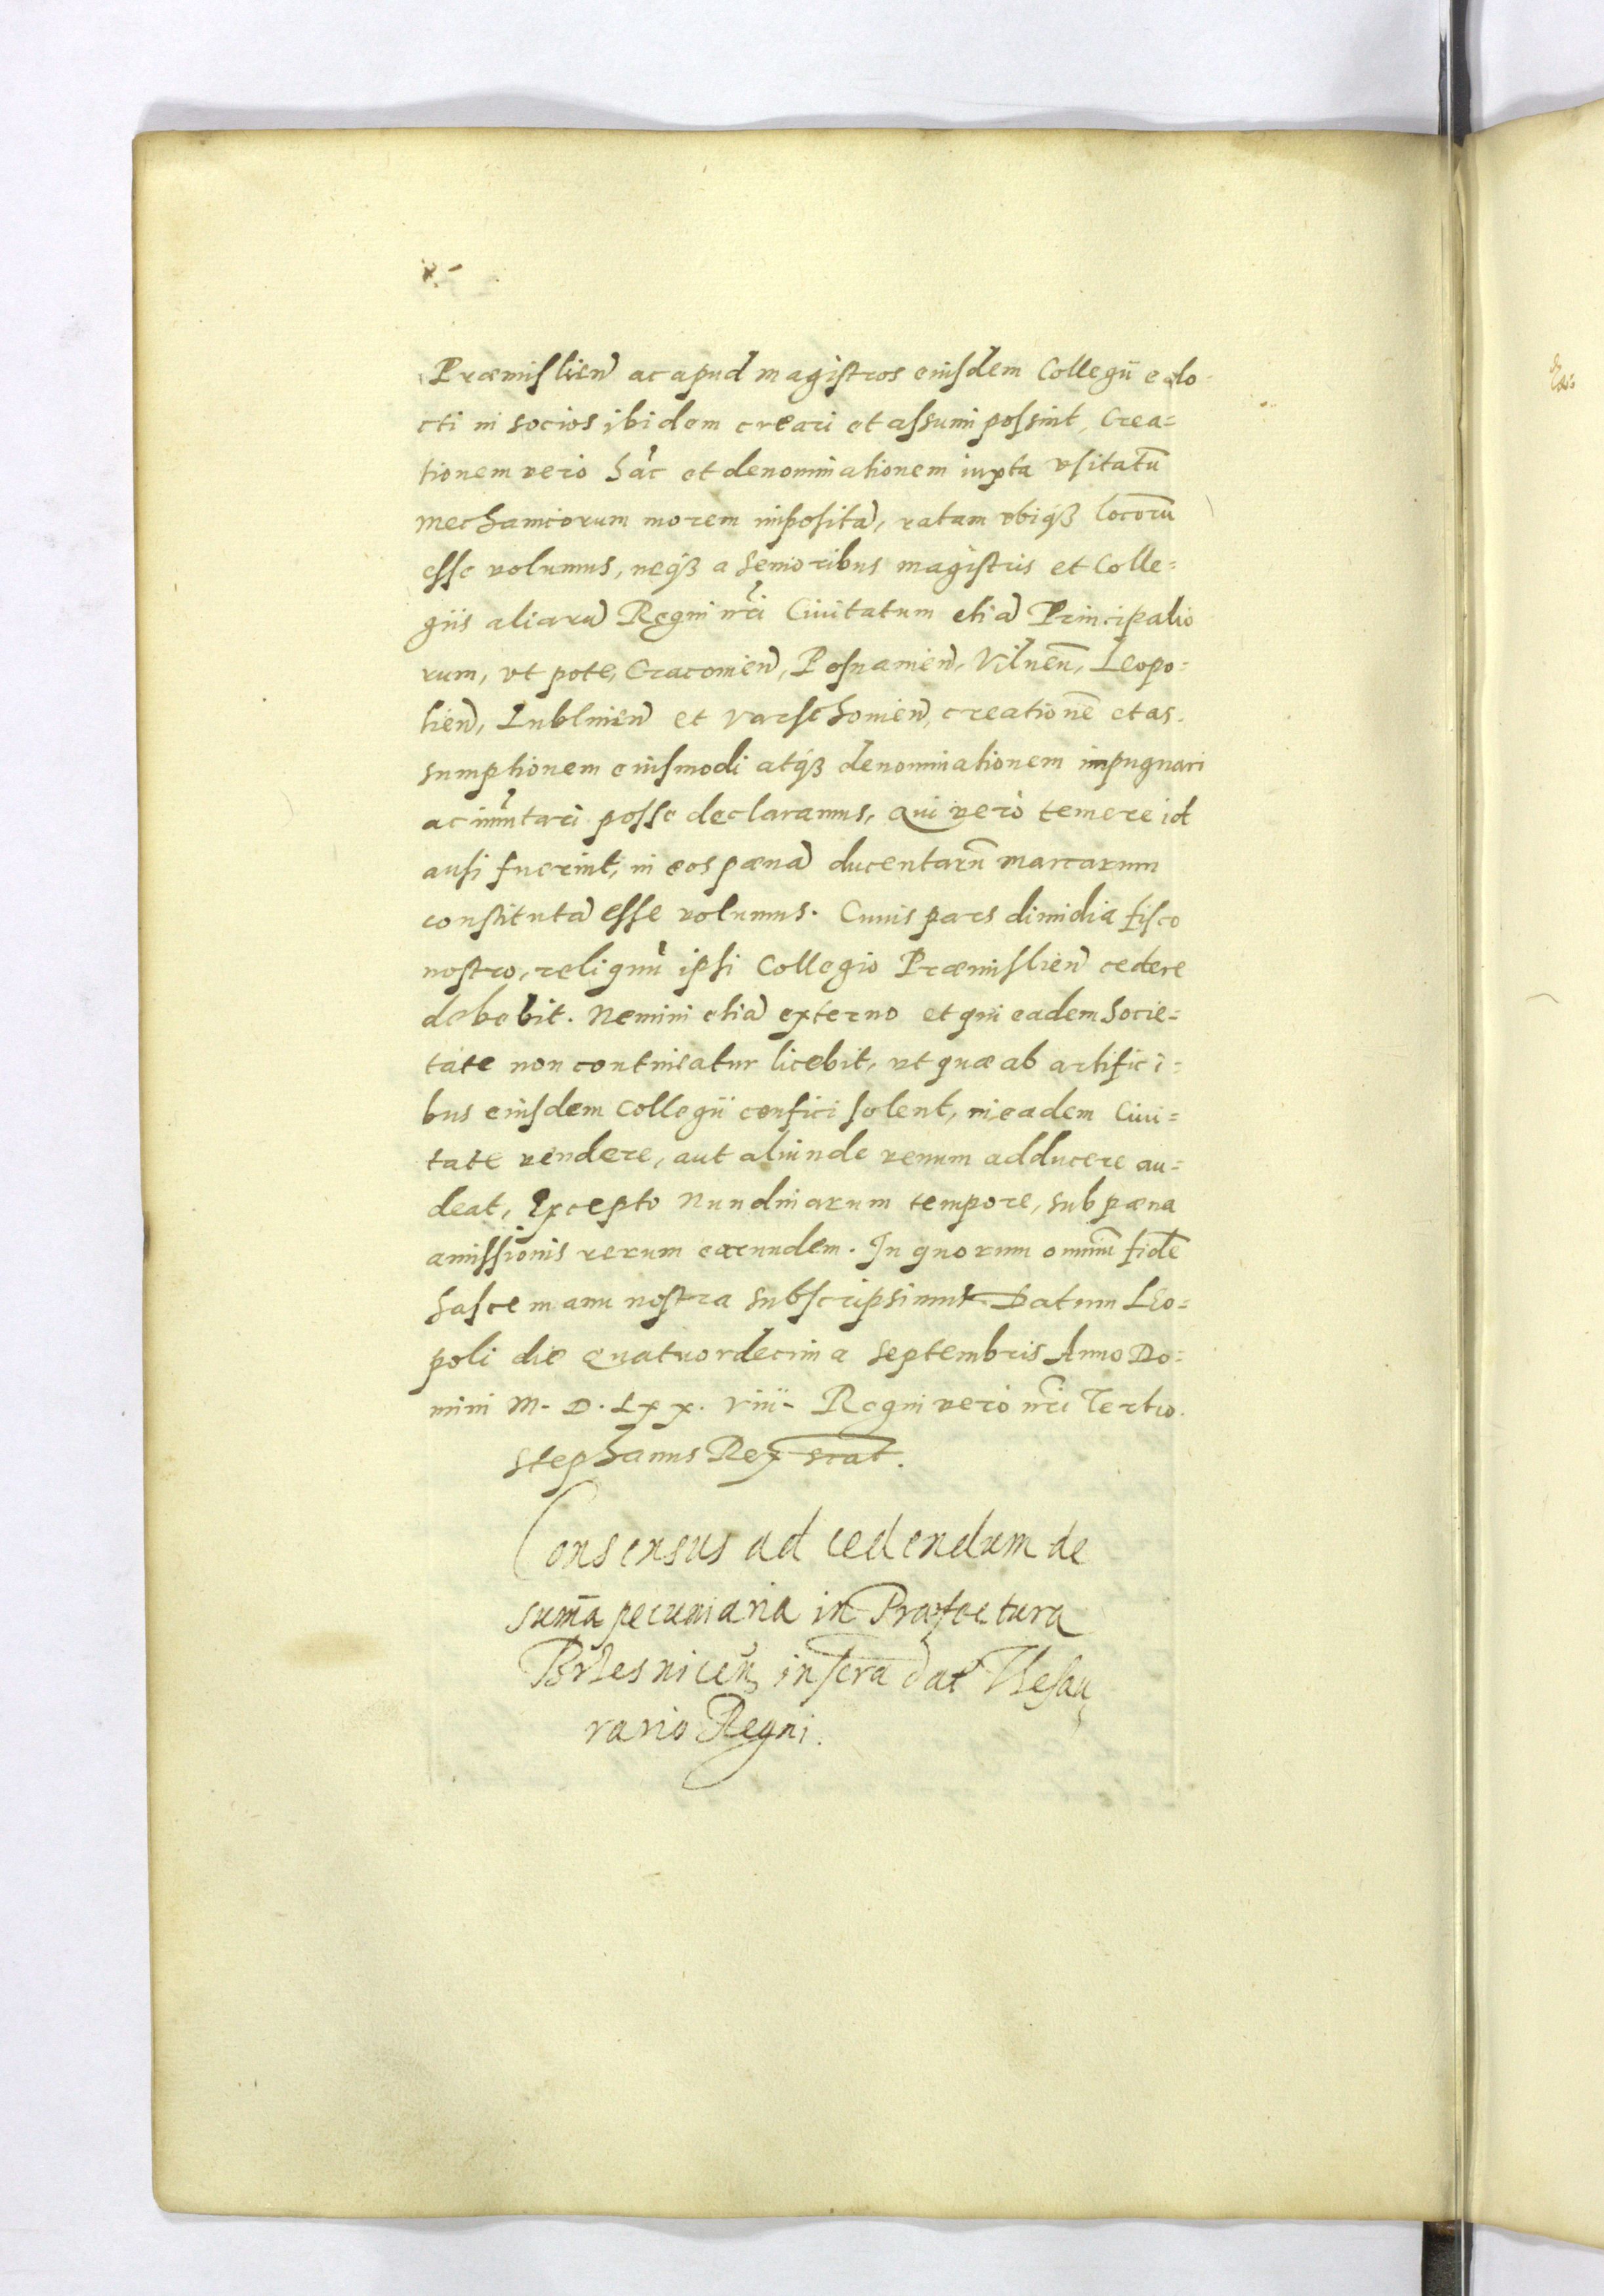 Præmislien̄ ac apud magistros eiusdem Collegii edo
cti in socios ibidem creari et assumi possint, Crea=
tionem vero hāc et denominationem iuxta vsitatū
mechanicorum morem impositā, ratam vbiqꝫ locorū
esse volumus, neqꝫ a Senioribus magistris et Colle=
giis aliarū Regni nr̄i Ciuitatum etiā Principalio
rum, vt pote, Cracouien̄, Posnanien̄, Vilnen̄, Leopo=
lien̄, Lublinien̄ et Varschouien̄, creationē et as=
sumptionem eiusmodi atqꝫ denominationem impugnari
ac im̄utari posse declaramus, Qui vero temere id
ausi fuerint, in eos pœnā ducentarū marcarum
constitutā esse volumus. Cuius pars dimidia fisco
nostro, reliquū ipsi Collegio Præmislien̄ cedere
debebit. Nemini etiā externo et qui eadem Socie=
tate non contineatur licebit, vt quæ ab artifici=
bus eiusdem Collegii confici solent, in eadem Ciui=
tate vendere, aut aliunde venum adducere au=
deat, Excepto Nundinarum tempore, sub pœna
amissionis rerum earundem. In quorum omniū fidē
hasce manu nostra subscripsimus Datum Leo=
poli die Quatuordecima Septembris Anno Do=
mini M. D. Lxx. viii. Regni vero nr̄i Tertio.
Stephanus Rex scat.
Consensus ad cedendum de
sum̄a pecuniaria in Præfectura
Brzesnicen̄ inscra dat Thesau
rario Regni.